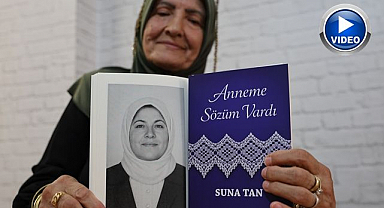 VIDEO
Anneme
Sözüm Vardı
SUNA TAN